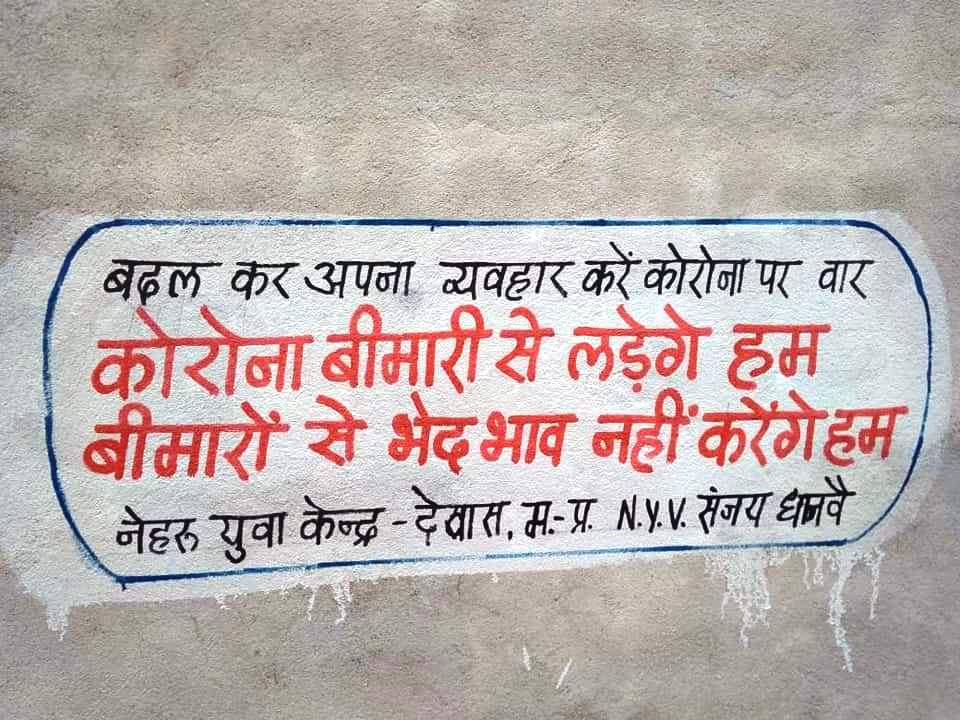 बदल कर अपना व्यवहार करें कोरोना पर वार
कोरोना बीमारी से लड़ेगे हम
बीमारों से भेद भाव नहीं करेंगे हम
नेहरू युवा केन्द्र - देवास, म.-प्र. N.Y.V. संजय धानवै